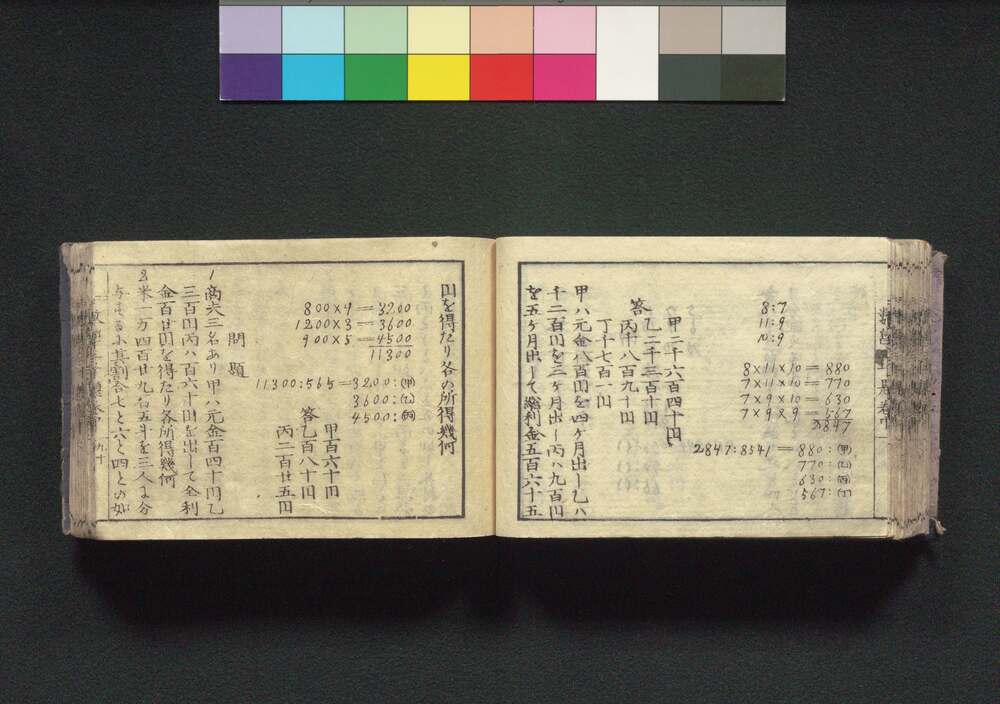 8:7
11:9
10:9
8×11×10=880
7×11×10=770
7×9×10=630
7×9×9=567
2847
2847:8541=880:(甲)
770:(乙)
630:(丙)
567:(丁)
甲二千六百四十円
答 乙二千三百十円
丙千八百九十円
丁千七百一円
甲ハ元金八百円を四ヶ月出し乙ハ
千二百円を三ヶ月出し丙ハ九百円
を五ヶ月出して總利金五百六十五
円を得たり各の所得幾何
800×4=3200
1200×3=3600
900×5=4500
11300
11300:565=3200:(甲)
3600:(乙)
4500:(丙)
甲百六十円
答 乙百八十円
丙二百廿五円
問題
1 商夫三名あり甲ハ元金百四十円乙
三百円丙ハ百六十円を出して全利
金百廿円を得たり各所得幾何
2 米一万四百廿九石五斗を三人に分
与するに其割合七と六と四との如